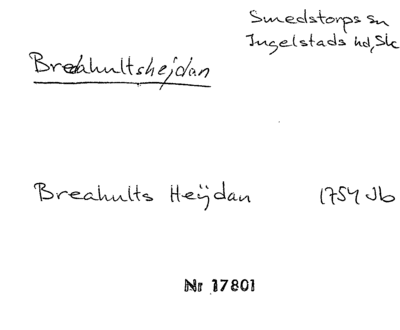 Smedstorps sn
Ingelstads hd, Sk
Breahultshejdan
Breahults Heÿdan 1754 Jb
Nr 17801